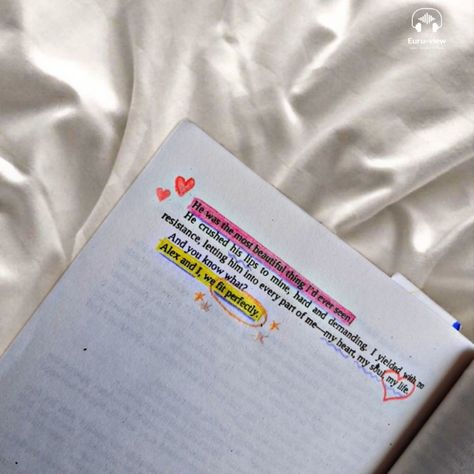 Euru-view
He was the most beautiful thing I'd ever seen.
He crushed his lips to mine, hard and demanding. I yielded with no
resistance, letting him into every part of me—my heart, my soul, my life.
And you know what?
Alex and I, we fit perfectly.